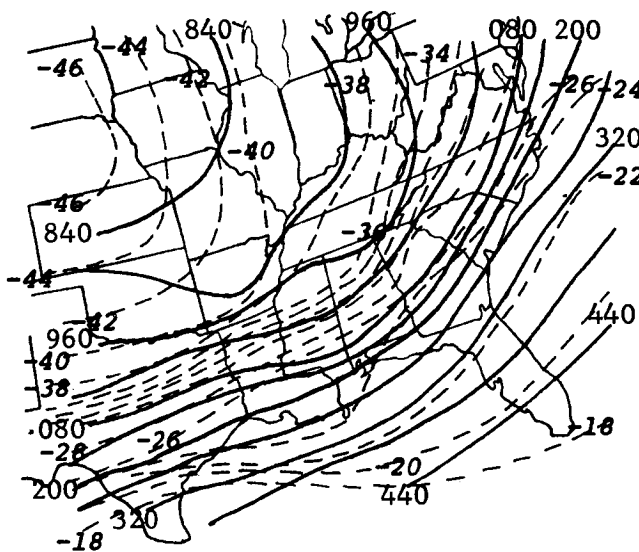 840
960
-34
080
200
-44
-46
-42
-38
-26
-24
320
-40
-22
-46
840
-36
-44
-42
960
440
-40
-38
.080
-28
-26
-18
-20
200
440
320
-18